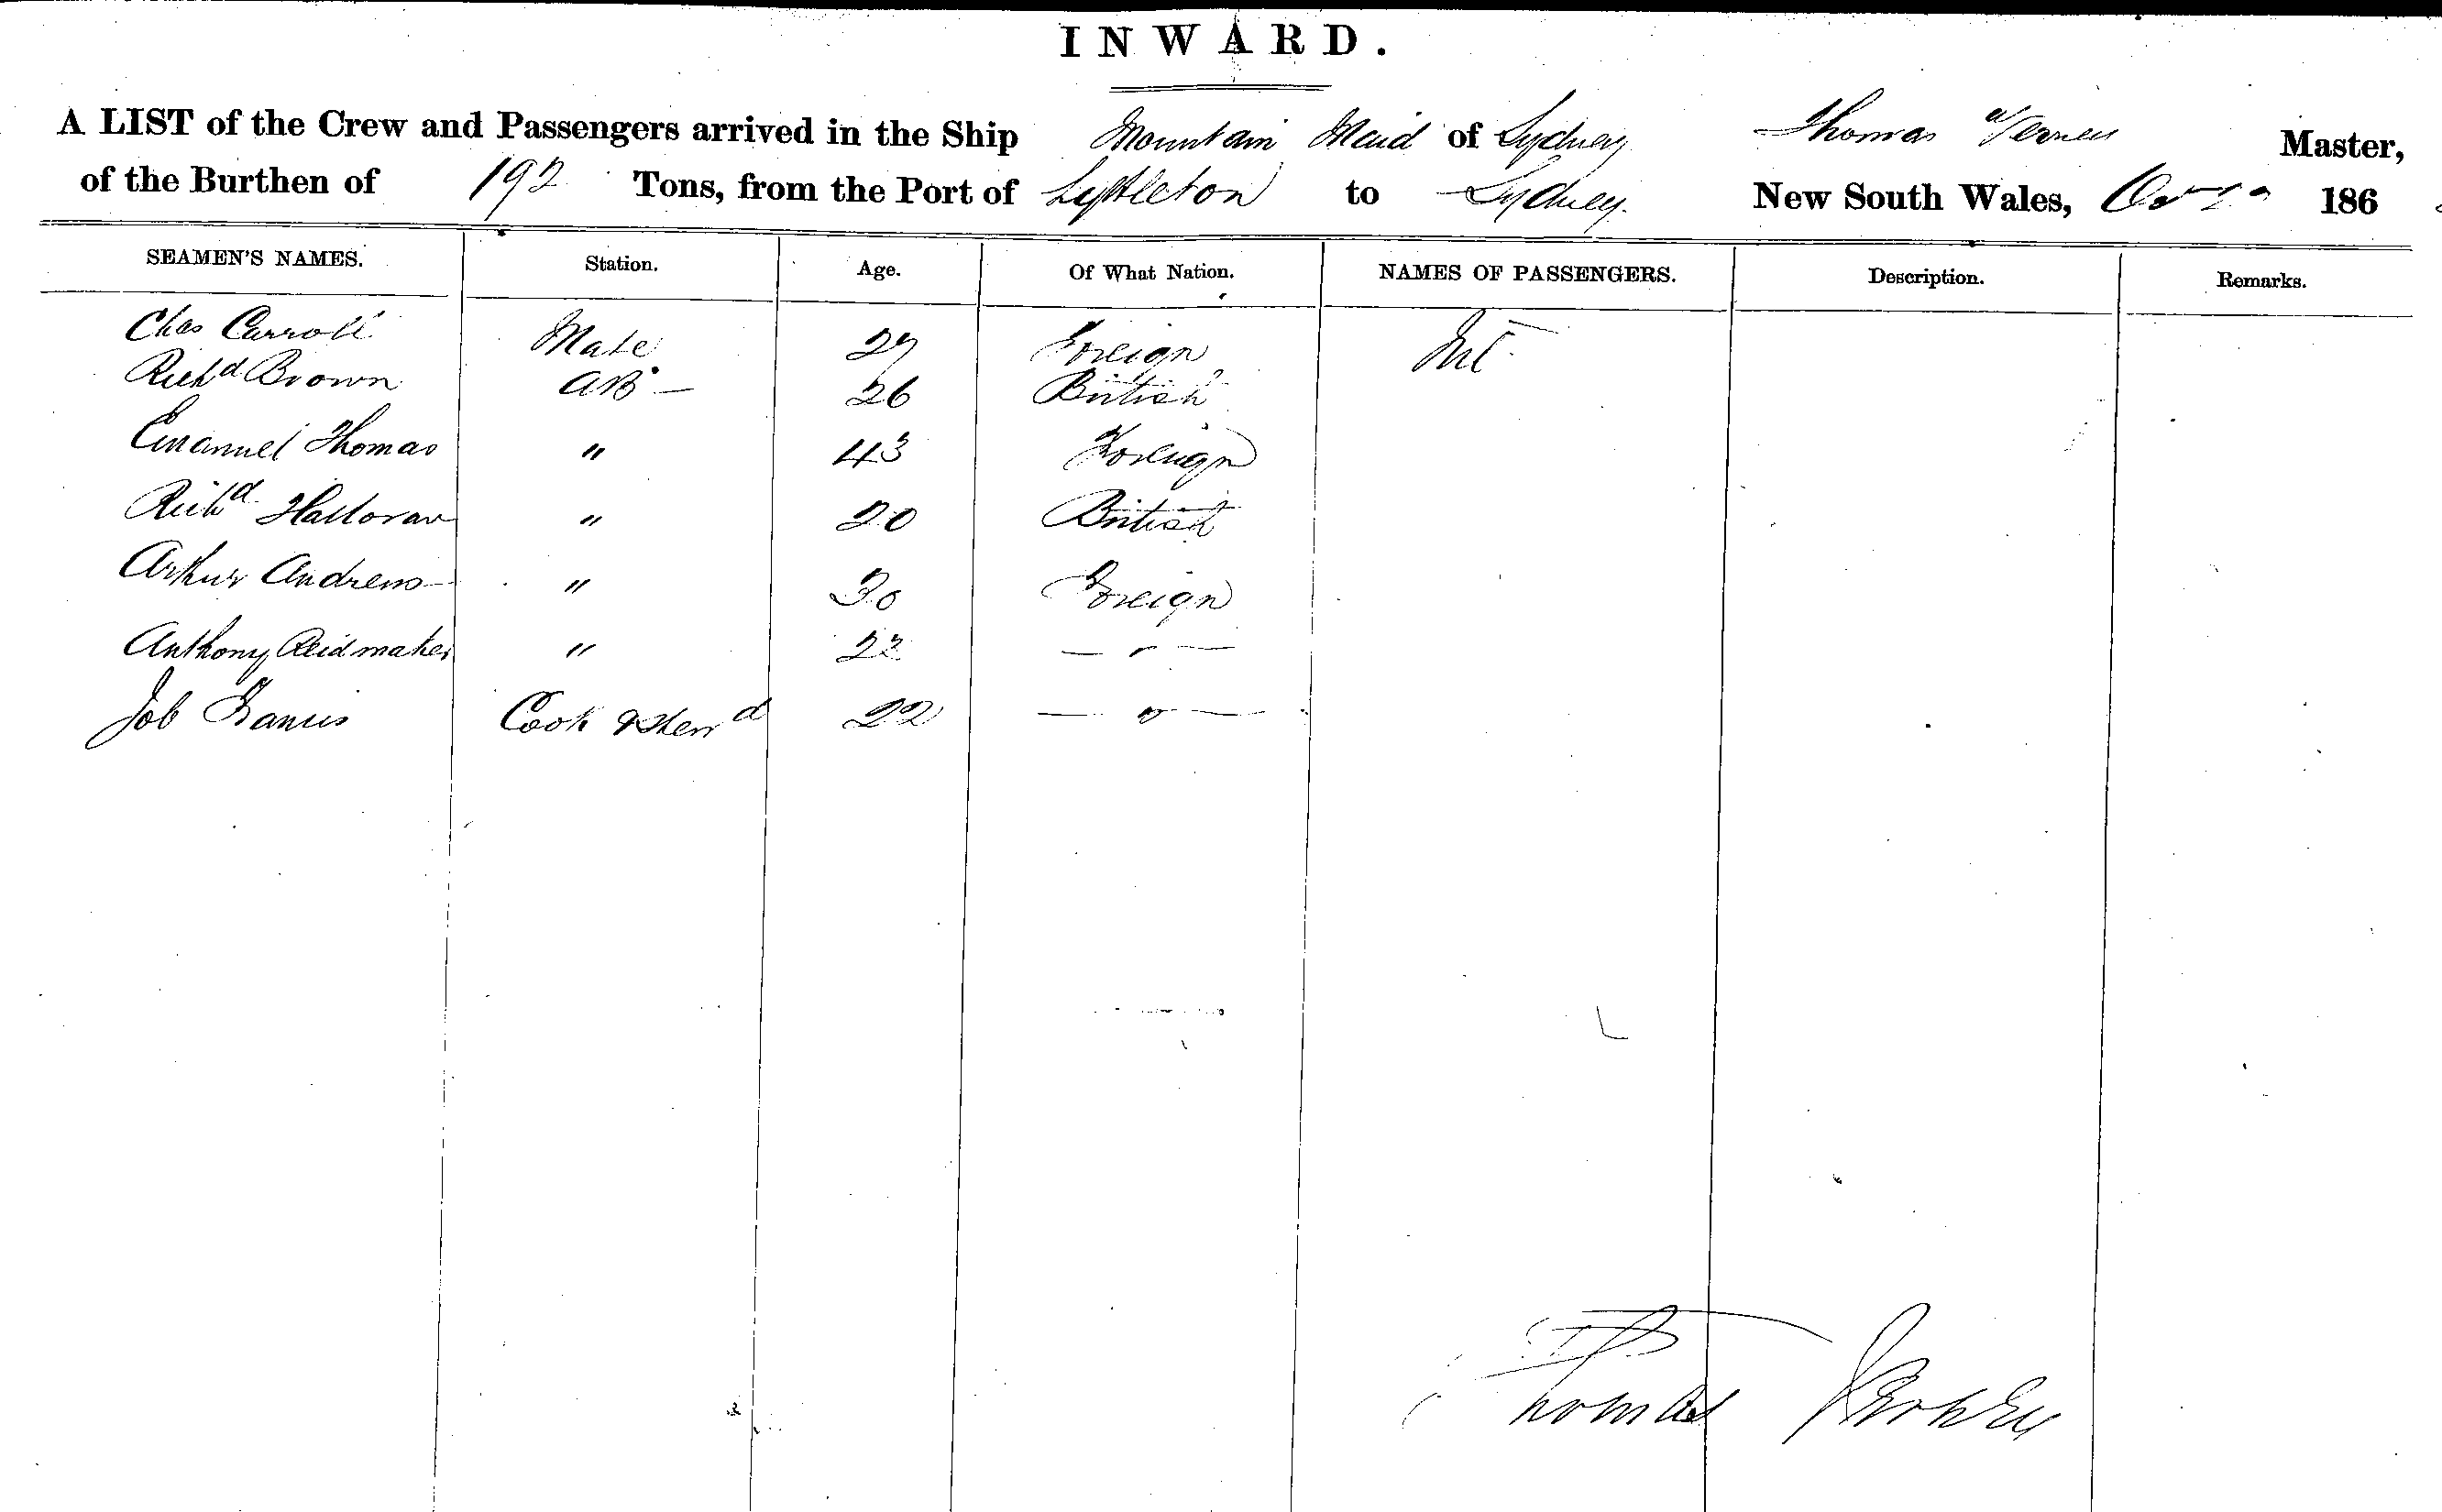 INWARD.
A LIST of the Crew and Passengers arrived in the Ship Mountain Maid of Sydney Thomas Master,
of the Burthen of 192 Tons, from the Port of Lyttleton to Sydney New South Wales, 186
SEAMEN'S NAMES. Station. Age. Of What Nation. NAMES OF PASSENGERS. Description. Remarks.
Chas Carroll Mate 27 Foreign
Richd Brown AB — 26 British
Emanuel Thomas " 43 Foreign
Richd Halloran " 20 British
Arthur Andrews " 30 Foreign
Anthony Reidmaker " 22 — " —
Job Francis Cook & Stewd 22 — " —
Thomas